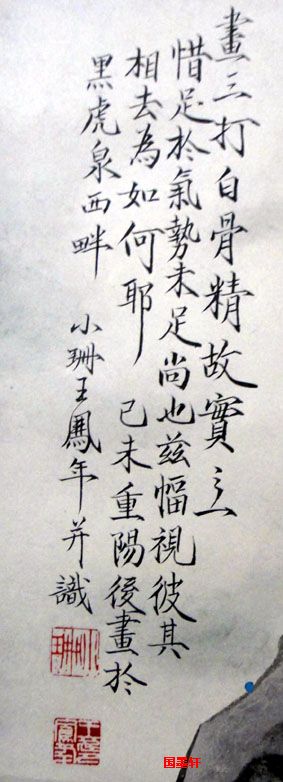 畫三打白骨精故實之一
惜足於氣勢未足尚也茲幅視彼其
相去為如何耶 己未重陽後畫於
黑虎泉西畔 小珊王鳳年并識
小珊
王鳳年
国玉轩